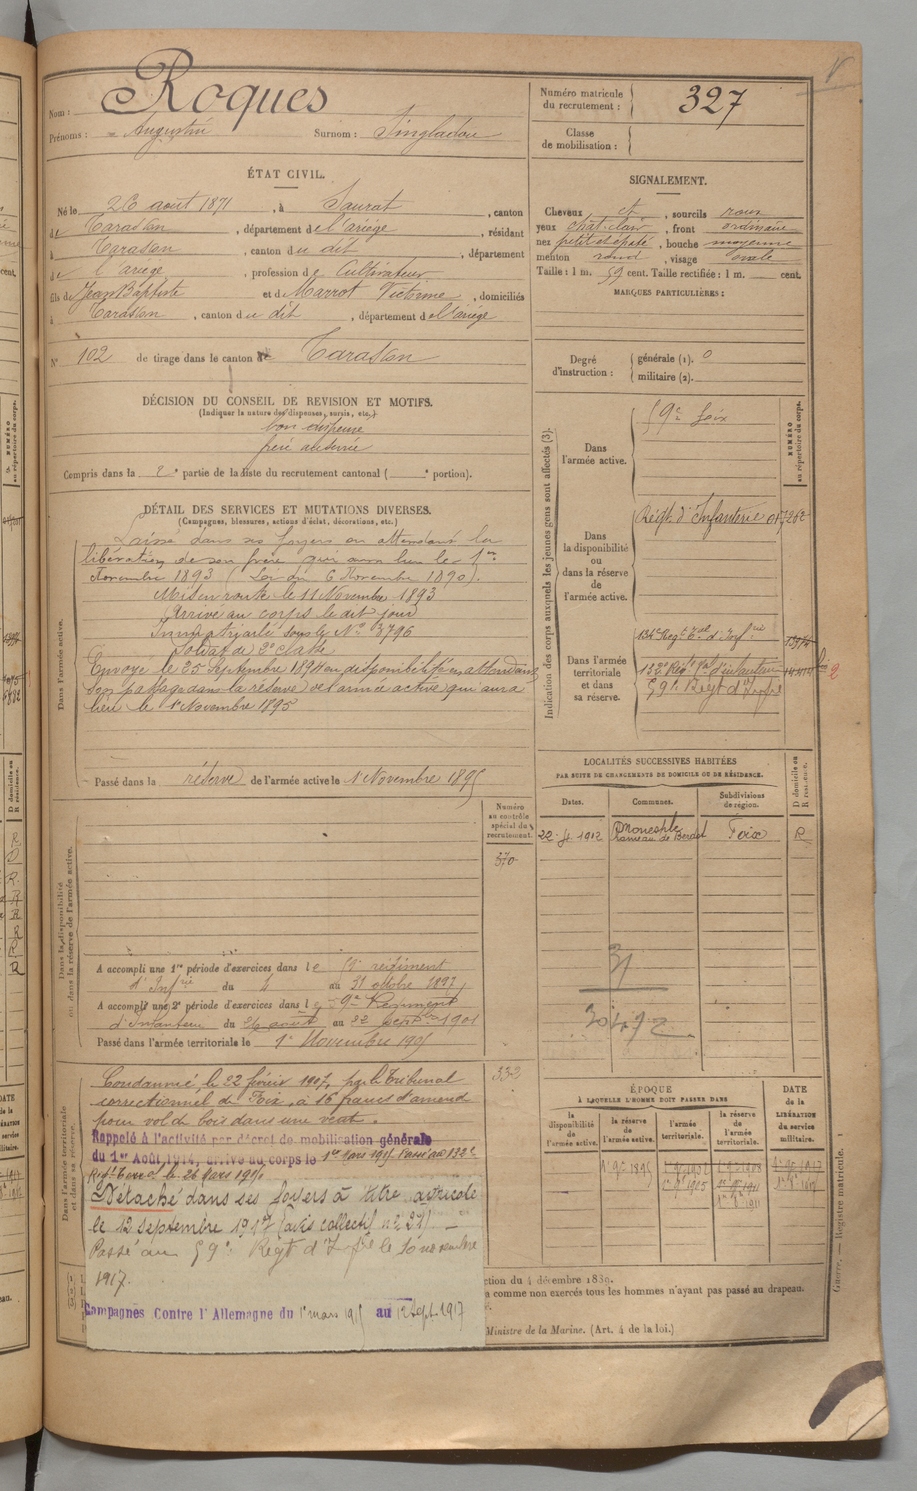 Nom : Roques
Prénoms : Augustin Surnom : Tingladou
Numéro matricule du recrutement : 327
Classe de mobilisation :
ÉTAT CIVIL.
Né le 26 août 1871, à Saurat, canton
de Tarascon, département de l'ariège, résidant
à Tarascon, canton du dit, département
de l'ariège, profession de Cultivateur
fils de Jean Baptiste et de Marrot Victorine, domiciliés
à Tarascon, canton du dit, département de l'ariège
N° 102 de tirage dans le canton de Tarascon
SIGNALEMENT.
Cheveux et, sourcils roux
yeux chat. clair, front ordinaire
nez petit et épaté, bouche moyenne
menton rond, visage ovale
Taille : 1 m. 59 cent. Taille rectifiée : 1 m. cent.
MARQUES PARTICULIÈRES :
Degré d'instruction : générale (1). 0
militaire (2).
DÉCISION DU CONSEIL DE REVISION ET MOTIFS.
(Indiquer la nature des dispenses, sursis, etc.)
bon dispense
frère au service
Compris dans la 2e partie de la liste du recrutement cantonal ( e portion).
DÉTAIL DES SERVICES ET MUTATIONS DIVERSES.
(Campagnes, blessures, actions d'éclat, décorations, etc.)
Dans l'armée active.
Laissé dans ses foyers en attendant la
libération de son frère, qui aura lieu le 1er
Novembre 1893 (Loi du 6 Novembre 1890).
Mis en route le 11 Novembre 1893
Arrivé au corps le dit jour
Immatriculé sous le No 3796
Soldat de 2e classe
Envoyé le 25 Septembre 1894 en disponibilité en attendant
son passage dans la réserve de l'armée active qui aura
lieu le 1 Novembre 1895
Passé dans la réserve de l'armée active le 1 Novembre 1895
Indication des corps auxquels les jeunes gens sont affectés (3).
NUMÉRO au répertoire du corps.
Dans l'armée active.
59e Foix
Dans la disponibilité ou dans la réserve de l'armée active.
Régt d'Infanterie
Dans l'armée territoriale et dans sa réserve.
134e Regt Tal d'Infrie
132e Régt Tal d'infanterie
59e Régt d'Infie
2
LOCALITÉS SUCCESSIVES HABITÉES
PAR SUITE DE CHANGEMENTS DE DOMICILE OU DE RÉSIDENCE.
Dates. Communes. Subdivisions de région. D domicile ou R résidence.
1912 Foix R
Dans la disponibilité ou dans la réserve de l'armée active.
Numéro au contrôle spécial du recrutement.
370
A accompli une 1re période d'exercices dans le régiment
d'Infrie du 4 au 31 octobre 1897
A accompli une 2e période d'exercices dans le 59e Régiment
d'Infanterie du 26 août au 22 septbre 1901
Passé dans l'armée territoriale le 1er Novembre 1905
31
30472
Dans l'armée territoriale et dans sa réserve.
332
Condamné le 22 février 1907, par le Tribunal
correctionnel de Foix, à 16 francs d'amende
pour vol de bois
Rappelé à l'activité par décret de mobilisation générale
du 1er Août 1914, arrivé au corps le 1er Mars 1915 Passé au 132e
Regt Terral le 26 Mars 1915
Détaché dans ses foyers à titre agricole
le 12 septembre 1917 (avis collectif no 27)
Passé au 59e Régt d'Infie le
1917.
Campagnes Contre l'Allemagne du 1er mars 1915 au 12 Sept. 1917
ÉPOQUE
À LAQUELLE L'HOMME DOIT PASSER DANS
la disponibilité de l'armée active. la réserve de l'armée active. l'armée territoriale. la réserve de l'armée territoriale.
DATE de la LIBÉRATION du service militaire.
ction du 4 décembre 1889.
comme non exercés tous les hommes n'ayant pas passé au drapeau.
Ministre de la Marine. (Art. 4 de la loi.)
Guerre. — Registre matricule.